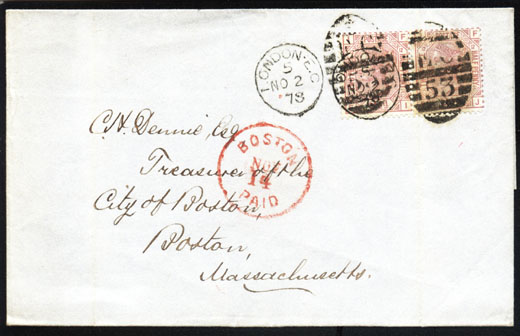 LONDON·E.C
5
NO 2
78
53
C. H. Dennie, Esq
Treasurer of the
City of Boston,
Boston,
Massachusetts.
BOSTON
NOV
14
PAID